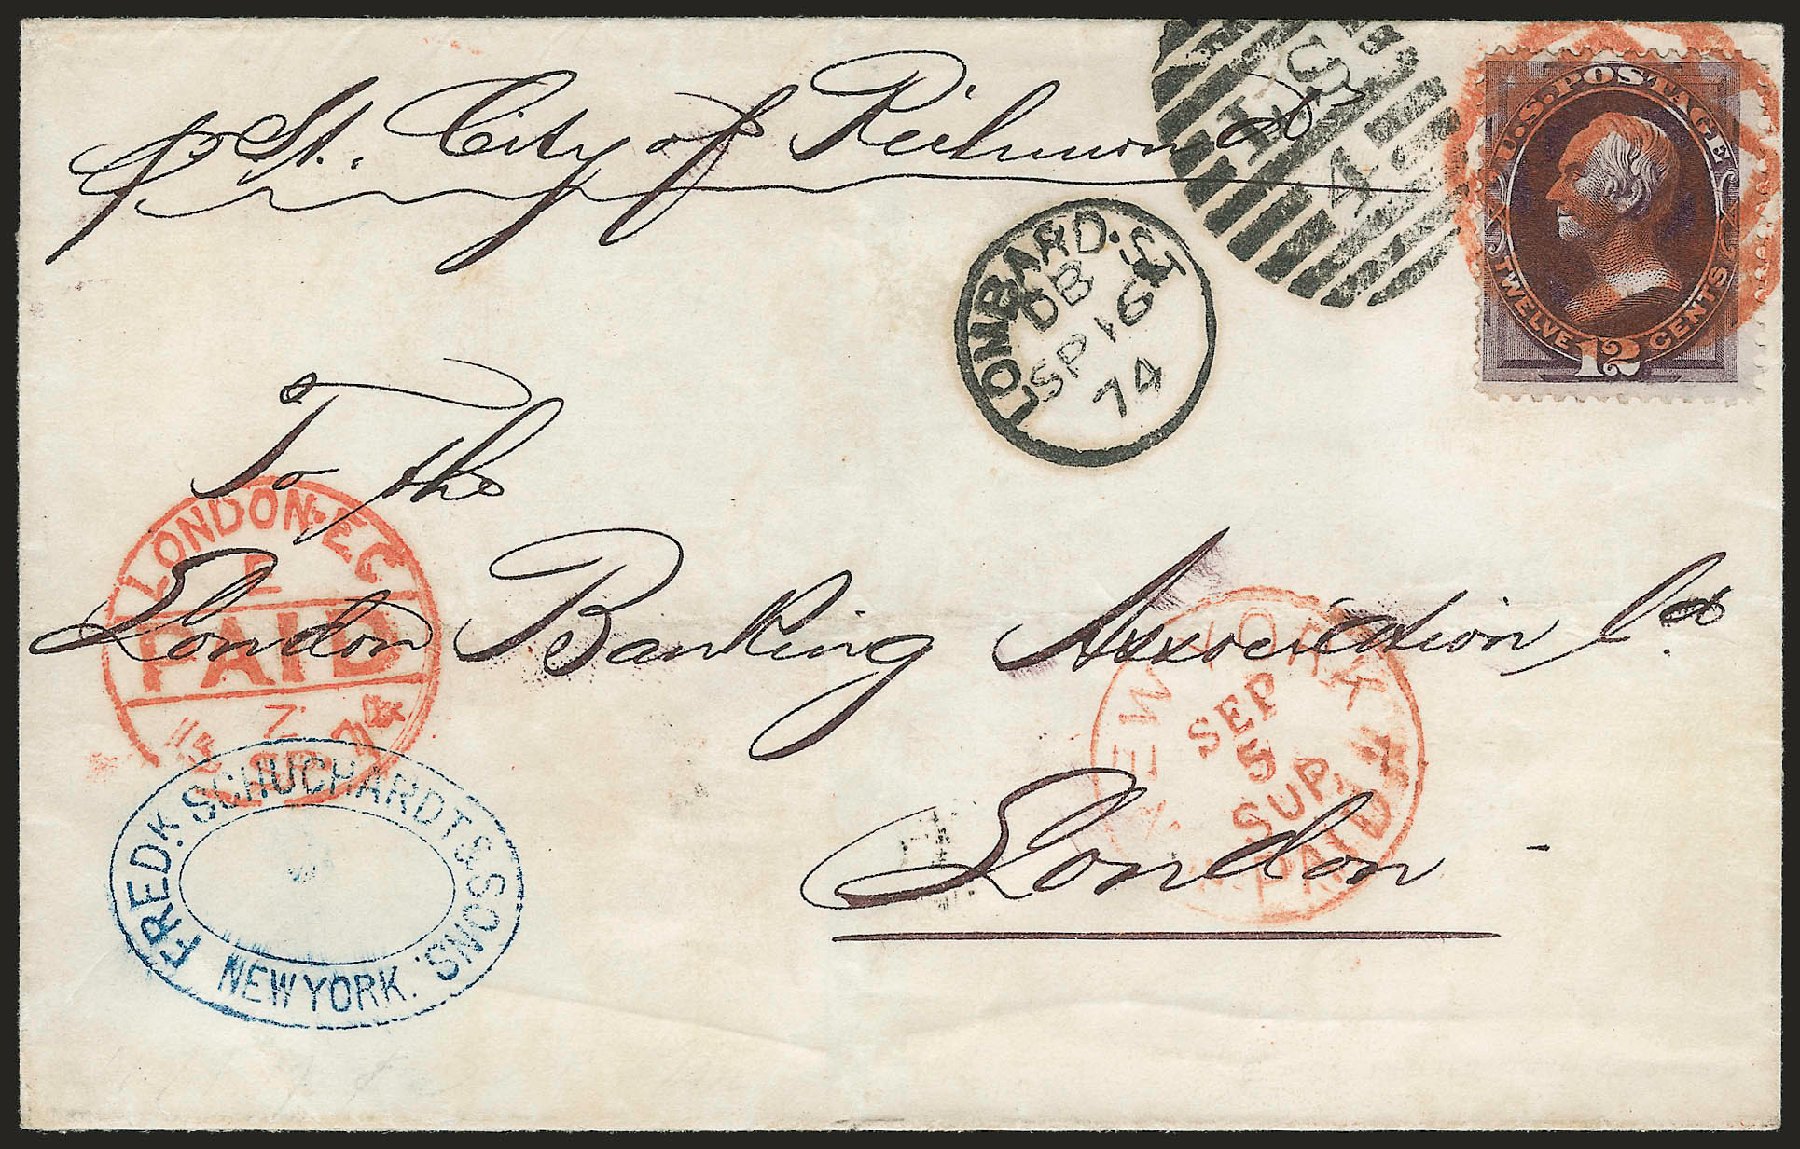 p St. City of Richmond
L.S
H
4
U.S. POSTAGE
TWELVE 12 CENTS
LOMBARD. ST
DB
SP 16
74
To the
London Banking Association Ld
London
LONDON. EC
E
PAID
7
SP 74
NEW YORK
SEP
5
SUP.
PAID
FRED.K SCHUCHARDT & SONS.
NEW YORK.